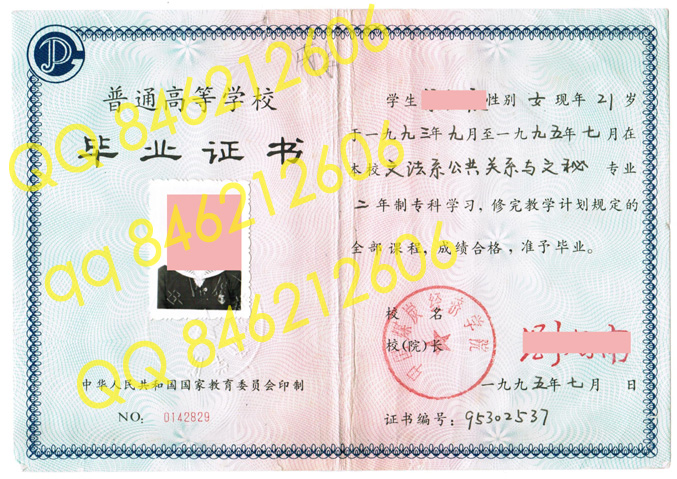 普通高等学校
毕业证书
学生
性别 女 现年 21 岁
于一九九三年九月至一九九五年七月在
本校文法系公共关系与文秘 专业
二年制专科学习，修完教学计划规定的
全部课程，成绩合格，准予毕业。
校 名
校(院)长
中国煤炭经济学院
一九九五年七月 日
中华人民共和国国家教育委员会印制
NO: 0142829
证书编号: 95302537
QQ 846212606
qq 846212606
QQ 846212606